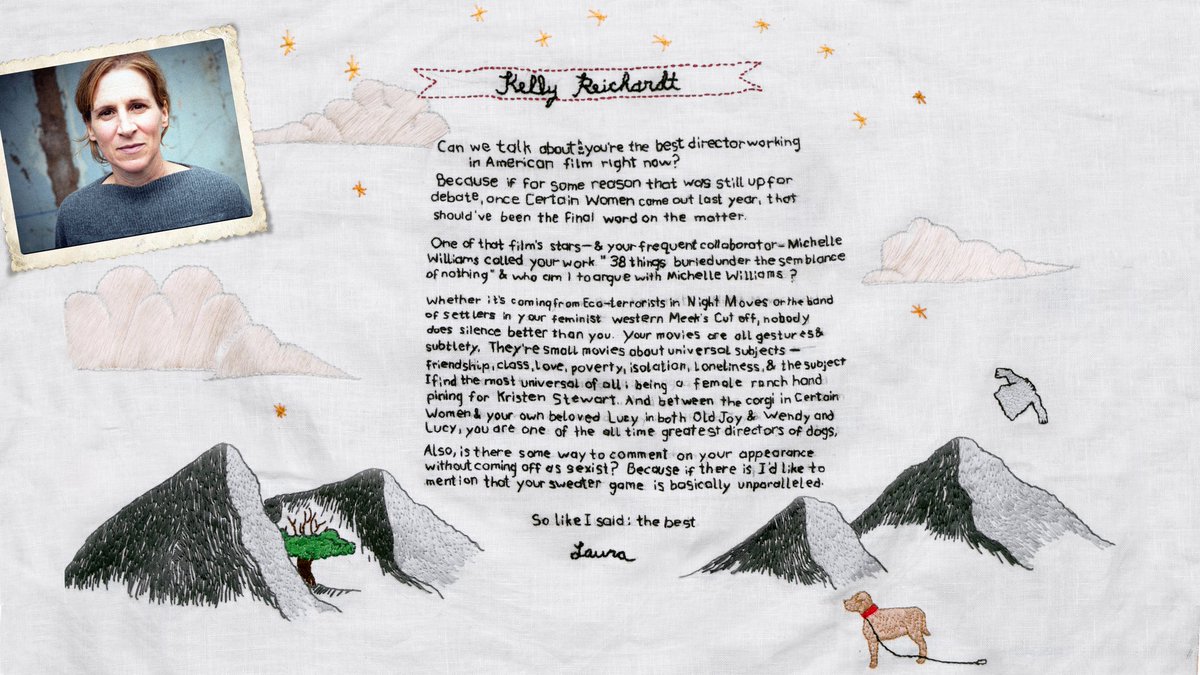 Kelly Reichardt
Can we talk about: you're the best director working
in American film right now?
Because if for some reason that was still up for
debate, once Certain Women came out last year, that
should've been the final word on the matter.
One of that film's stars—& your frequent collaborator—Michelle
Williams called your work "38 things buried under the semblance
of nothing" & who am I to argue with Michelle Williams?
Whether it's coming from Eco-terrorists in Night Moves or the band
of settlers in your feminist western Meek's Cut off, nobody
does silence better than you. Your movies are all gestures &
subtlety. They're small movies about universal subjects—
friendship, class, love, poverty, isolation, loneliness, & the subject
I find the most universal of all: being a female ranch hand
pining for Kristen Stewart. And between the corgi in Certain
Women & your own beloved Lucy in both Old Joy & Wendy and
Lucy, you are one of the all time greatest directors of dogs.
Also, is there some way to comment on your appearance
without coming off as sexist? Because if there is, I'd like to
mention that your sweater game is basically unparalleled.
So like I said: the best
Laura